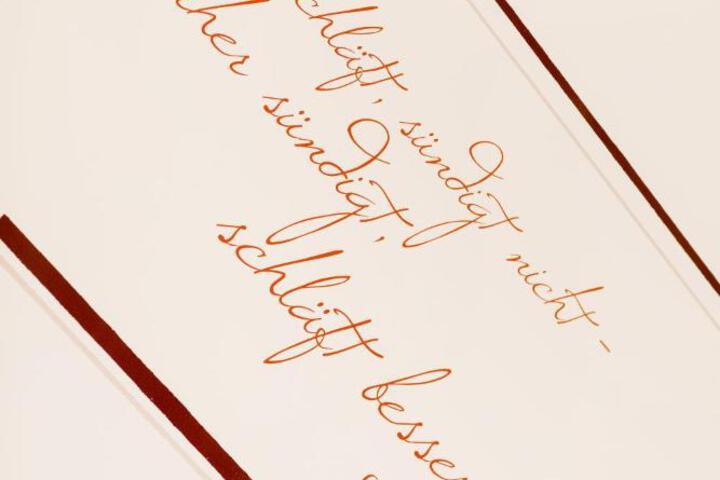 schläft, sündigt nicht -
her sündigt,
schläft besser